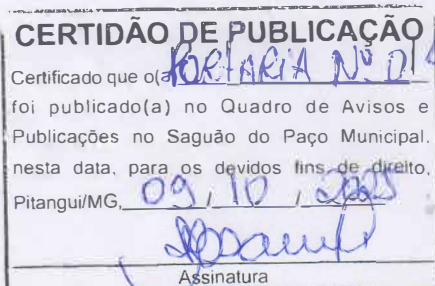 CERTIDÃO DE PUBLICAÇÃO
Certificado que o(a) PORTARIA Nº
foi publicado(a) no Quadro de Avisos e
Publicações no Saguão do Paço Municipal.
nesta data, para os devidos fins de direito,
Pitangui/MG, 09 / 10 / 2025
Assinatura